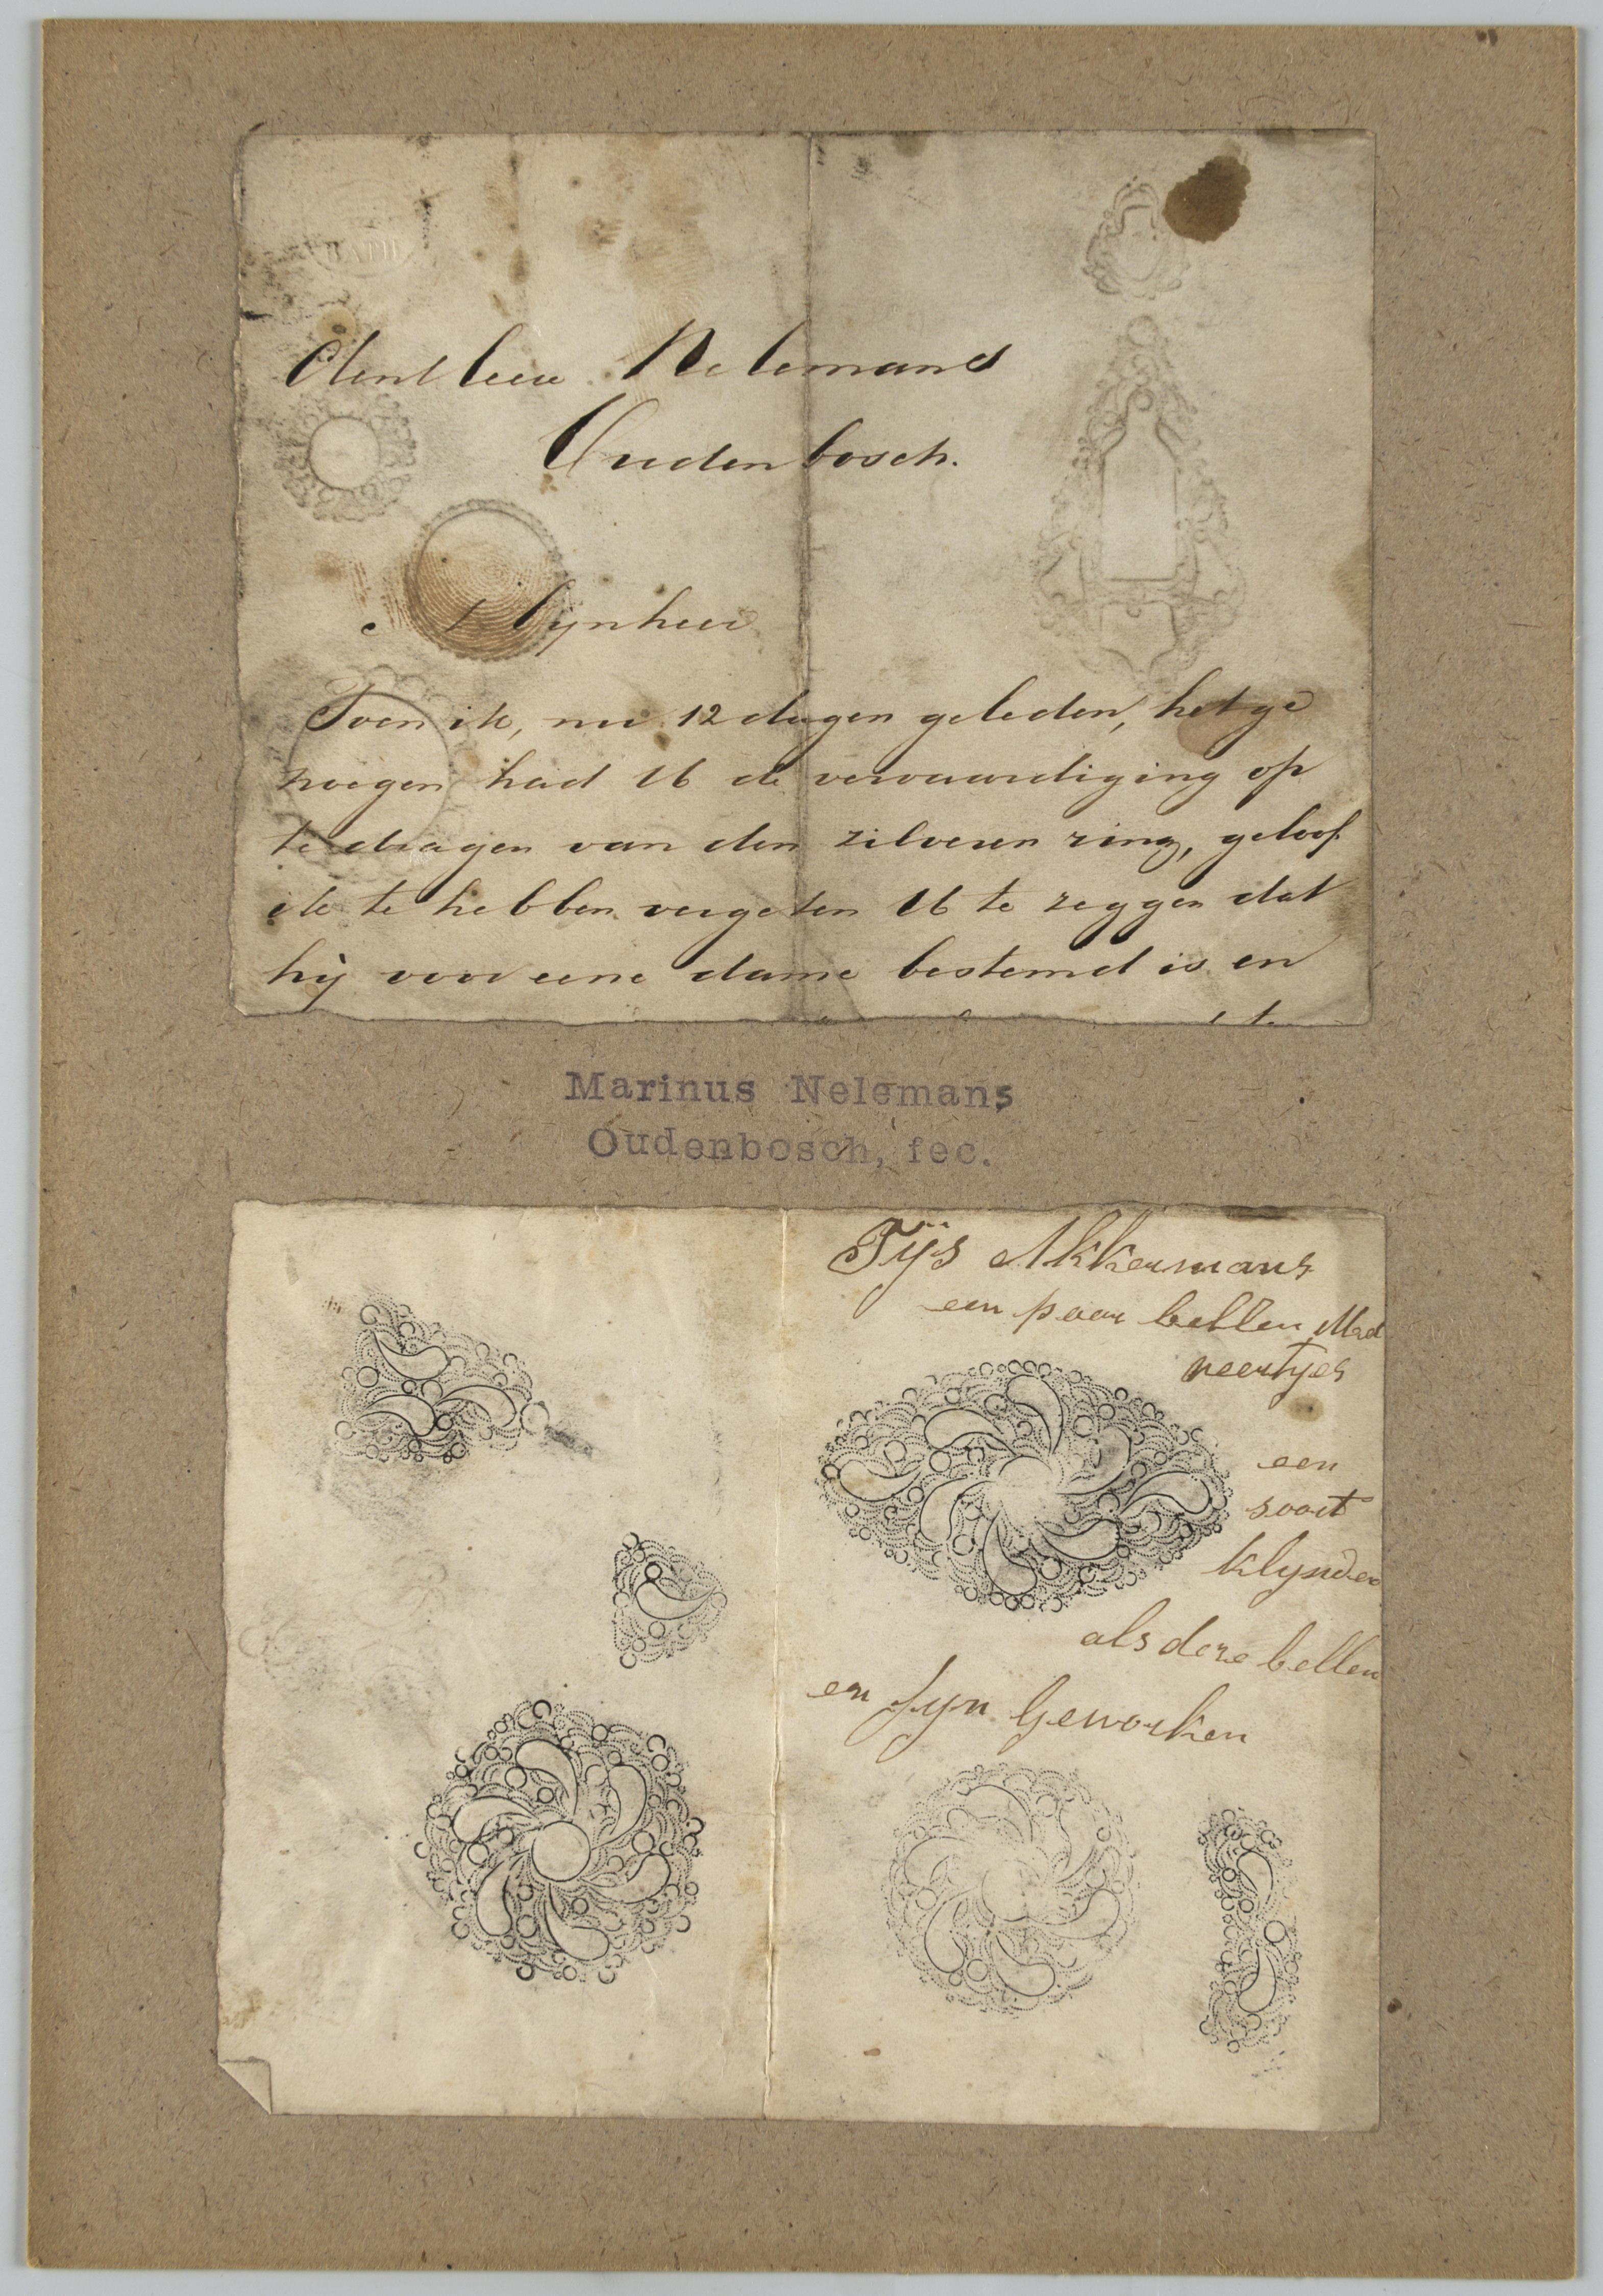 BATH
den Heer Nelemans
Oudenbosch.
Mynheer
Toen ik, nu 12 dagen geleden, het ge
noegen had U de vervaardiging op
te dragen van den zilveren ring, geloof
ik te hebben vergeten U te zeggen dat
hij voor eene dame bestemd is en
Marinus Nelemans
Oudenbosch, fec.
Tÿs Akkermans
een paar bellen Mad
neertjes
een
soort
klynder
als deze bellen
en fyn Geworken